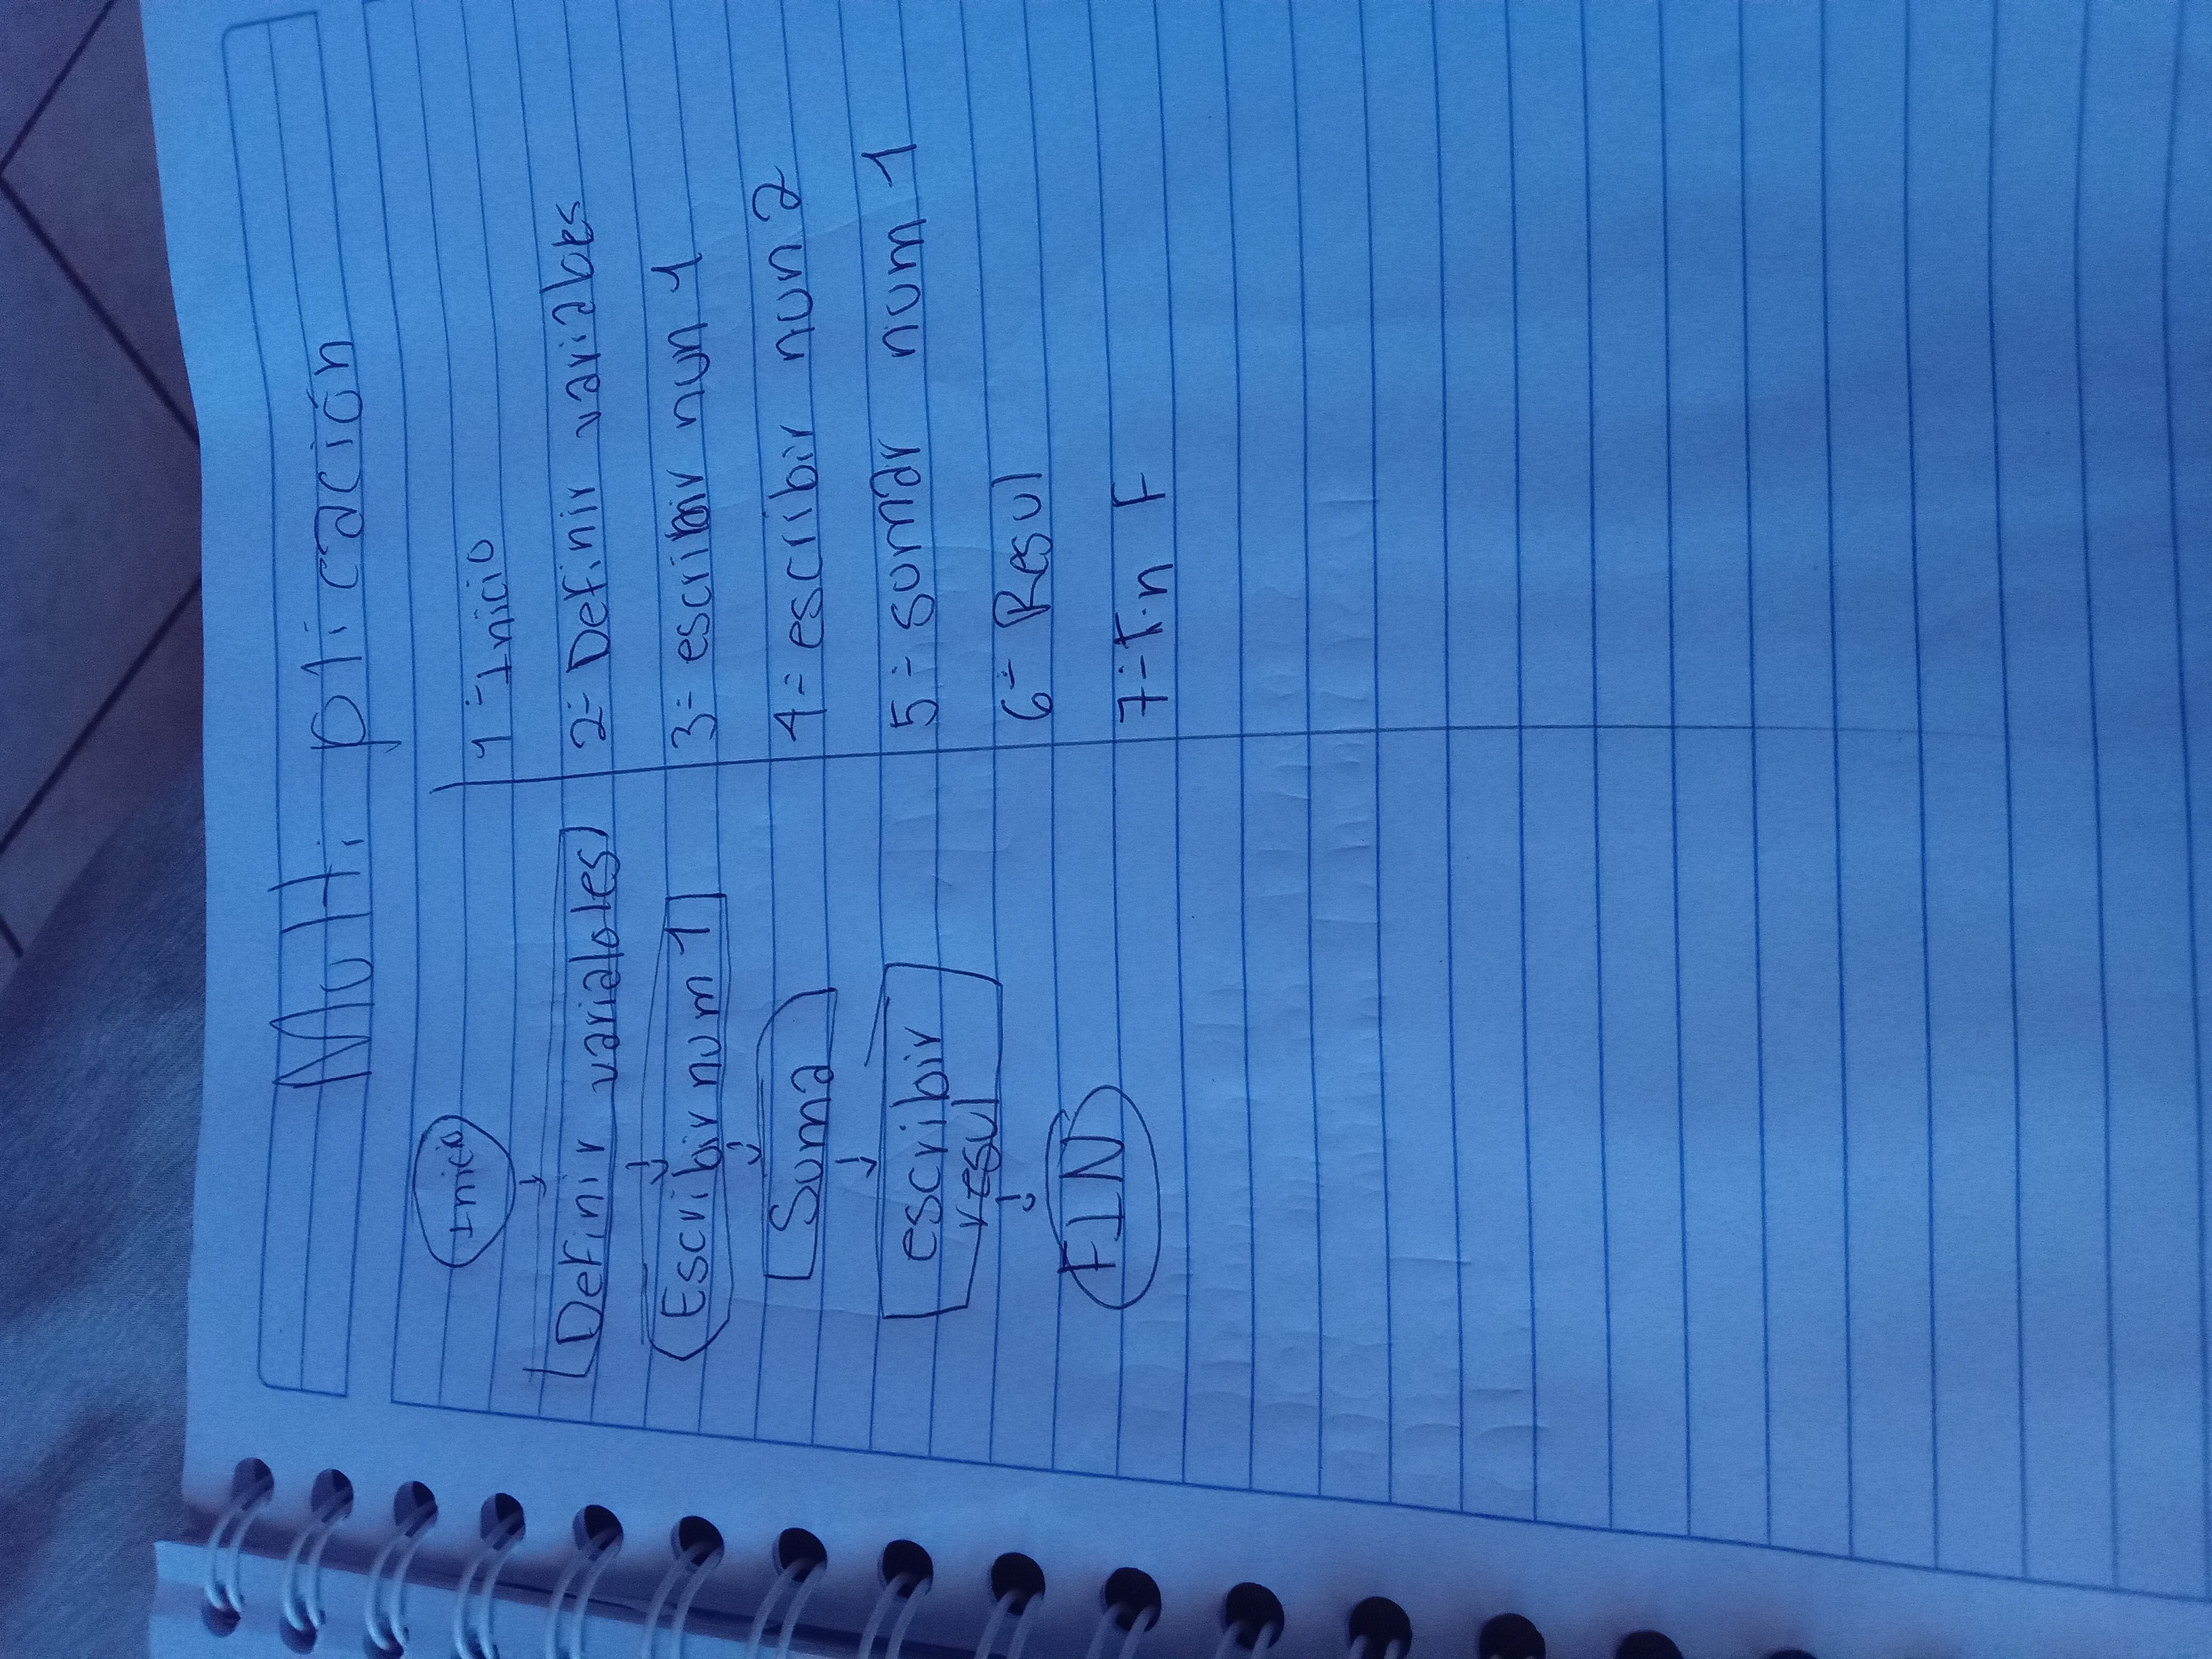 Multiplicación
Inicio
Definir variables
Escribir num 1
Suma
escribir
resul
FIN
1- Inicio
2- Definir variables
3- escribir nun 1
4- escribir nun 2
5- somar num 1
6- Resul
7- Fin F